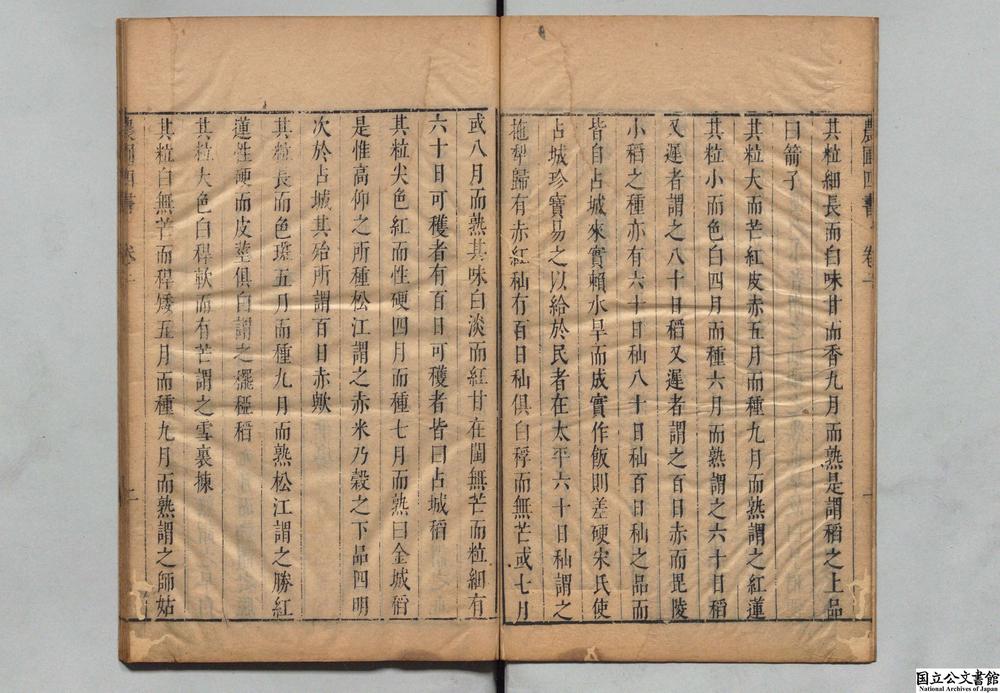 農圃四書 卷一 一
其粒細長而白味甘而香九月而熟是謂稻之上品
曰箭子
其粒大而芒紅皮赤五月而種九月而熟謂之紅蓮
其粒小而色白四月而種六月而熟謂之六十日稻
又遲者謂之八十日稻又遲者謂之百日赤而毘陵
小稻之種亦有六十日秈八十日秈百日秈之品而
皆自占城來實賴水旱而成實作飯則差硬宋氏使
占城珍寶易之以給於民者在太平六十日秈謂之
拖犁歸有赤紅秈有百日秈俱白稃而無芒或七月
或八月而熟其味白淡而紅甘在閩無芒而粒細有
六十日可穫者有百日可穫者皆曰占城稻
其粒尖色紅而性硬四月而種七月而熟曰金城稻
是惟高仰之所種松江謂之赤米乃穀之下品四明
次於占城其殆所謂百日赤歟
其粒長而色斑五月而種九月而熟松江謂之勝紅
蓮性硬而皮莖俱白謂之䆉稏稻
其粒大色白稈軟而有芒謂之雪裏揀
其粒白無芒而稈矮五月而種九月而熟謂之師姑
農圃四書 卷一
国立公文書館
National Archives of Japan